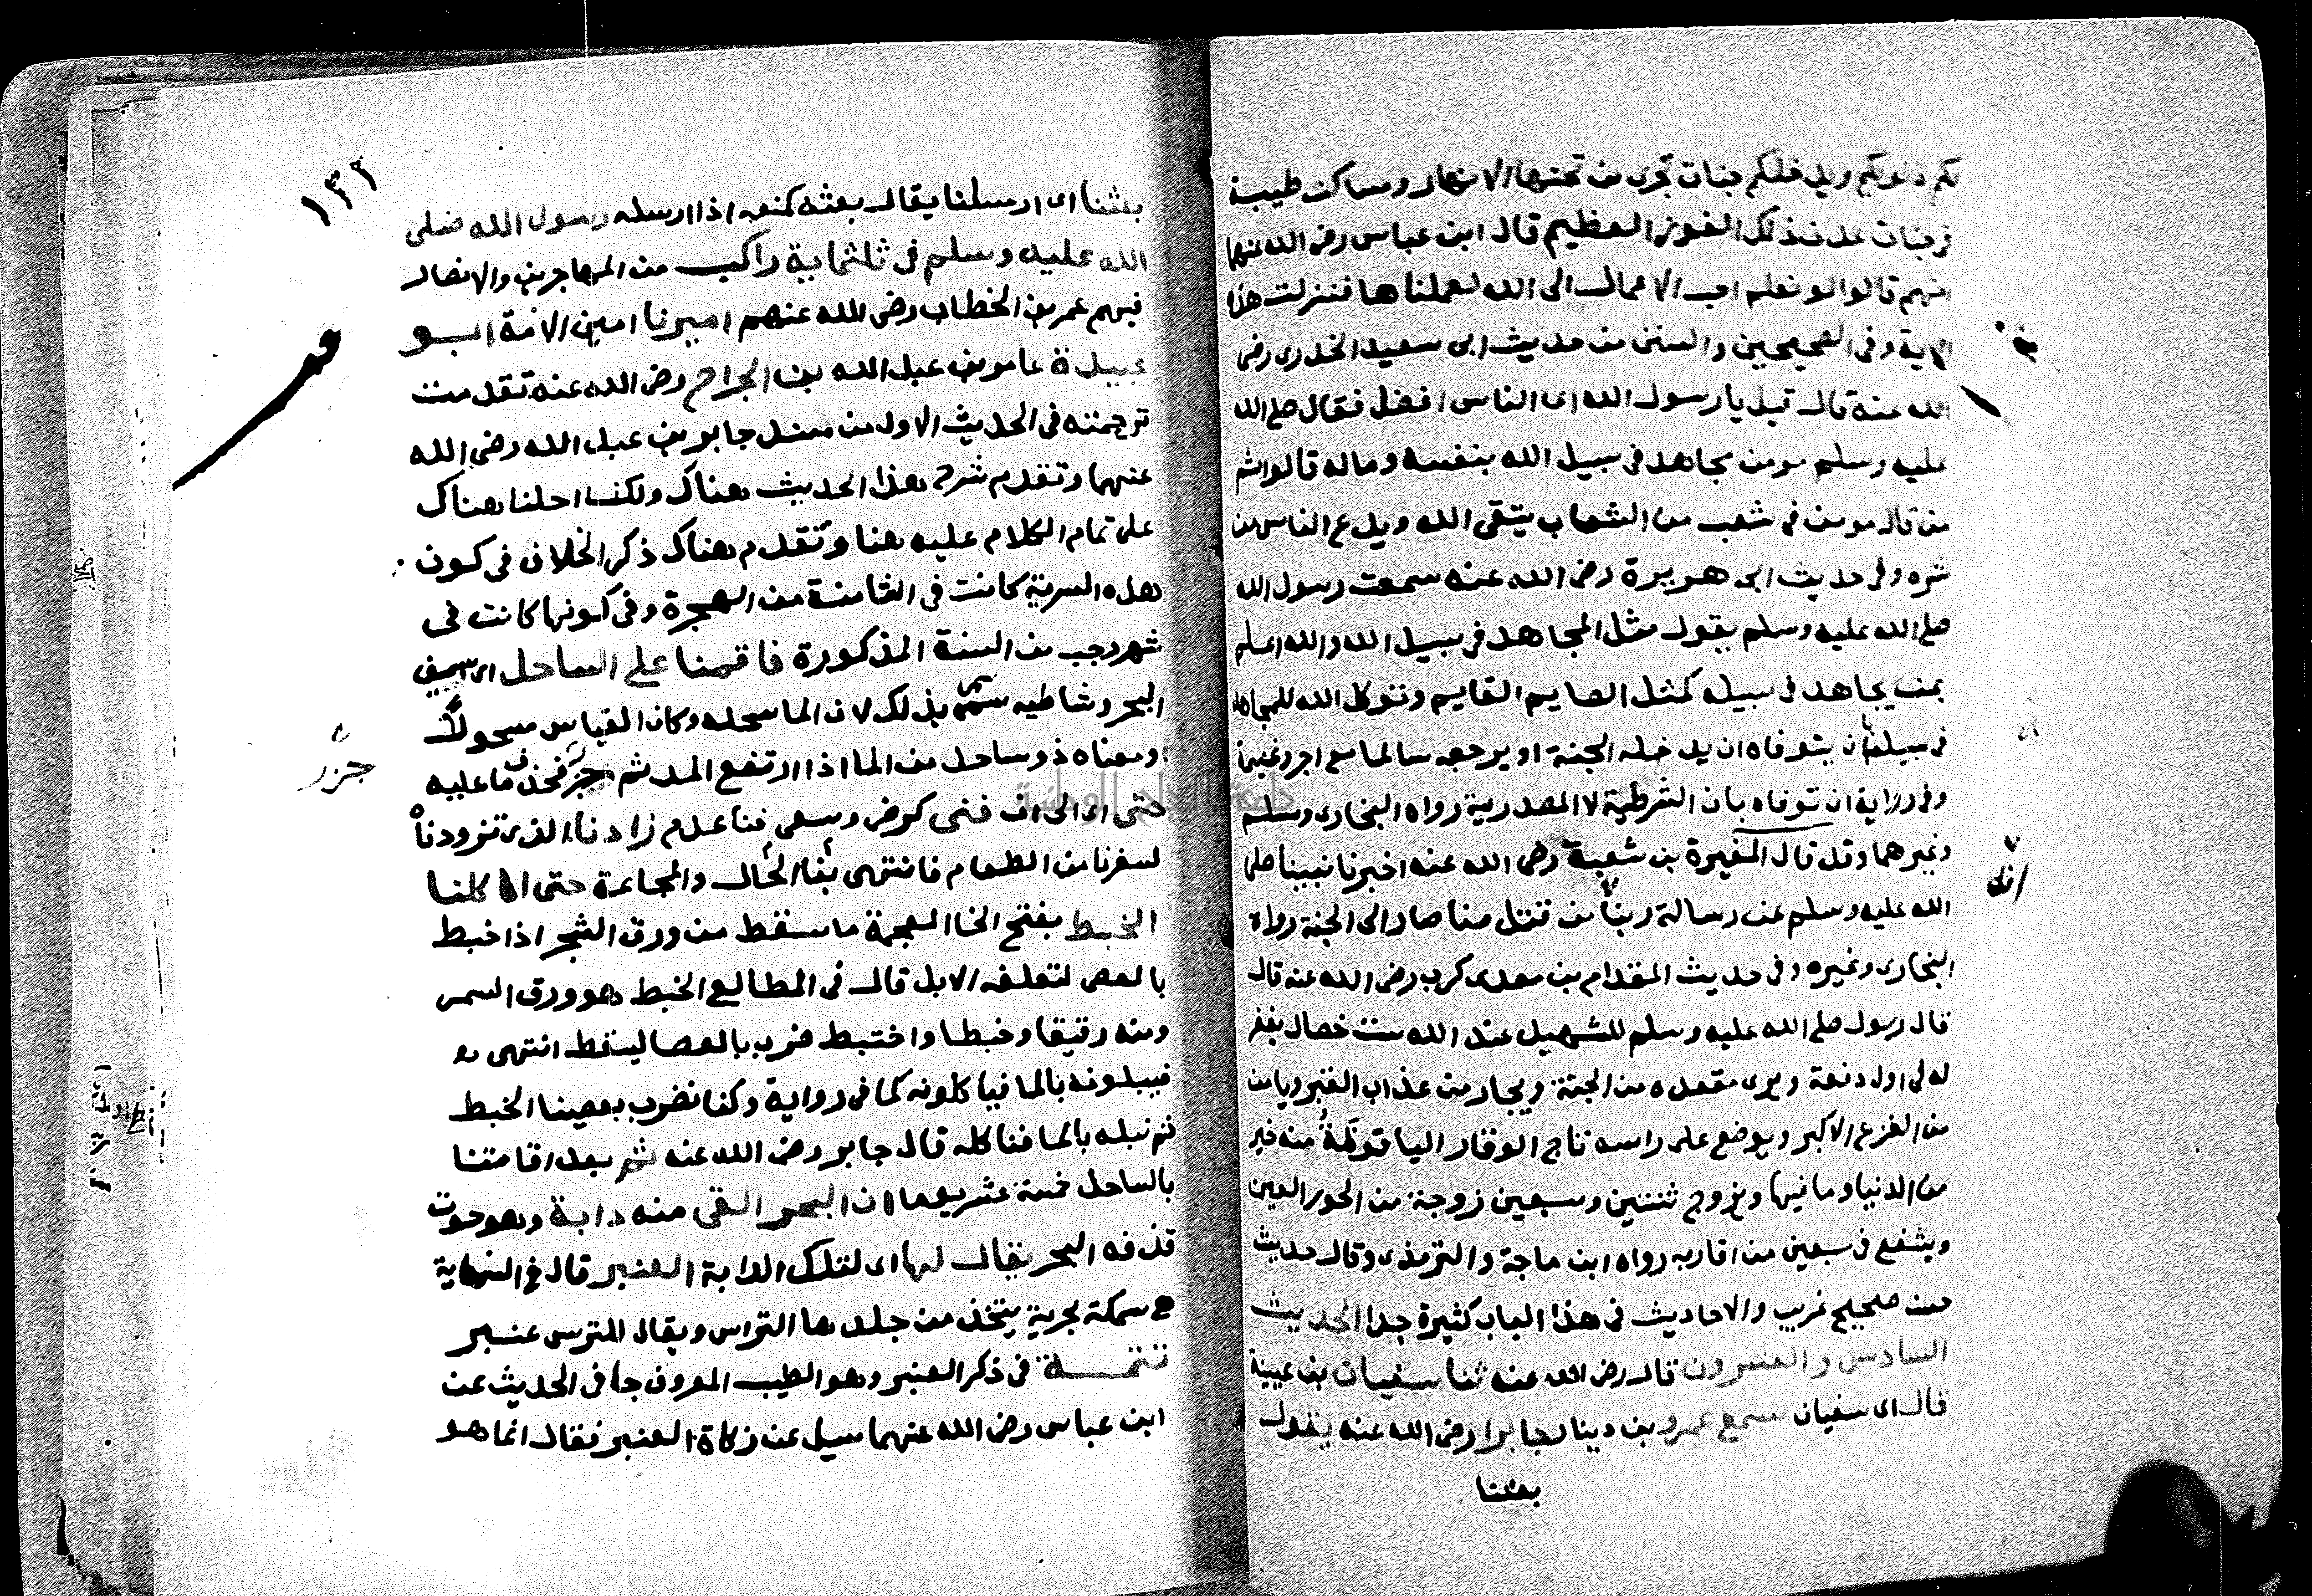 لكم ذنوبكم ويدخلكم جنات تجرى من تحتها الانهار ومساكن طيبة
فى جنات عدن ذلك الفوز العظيم قال ابن عباس رضى الله عنهما
انهم قالوا لو نعلم احب الاعمال الى الله لعملناها فنزلت هذه
الاية وفى الصحيحين والسنن من حديث ابى سعيد الخدرى رضى
الله عنه قال قيل يا رسول الله اى الناس افضل فقال صلى الله
عليه وسلم مومن مجاهد فى سبيل الله بنفسه وماله قالوا ثم
من قال مومن فى شعب من الشعاب يتقى الله ويدع الناس من
شره وفى حديث ابى هريرة رضى الله عنه سمعت رسول الله
صلى الله عليه وسلم يقول مثل المجاهد فى سبيل الله والله اعلم
بمن يجاهد فى سبيله كمثل الصايم القايم وتوكل الله للمجاهد
فى سبيله بان يتوفاه ان يدخله الجنة او يرجعه سالما مع اجر وغنيمة
وفى رواية ان توفاه بان الشرطية لا المصدرية رواه البخارى ومسلم
وغيرهما وقد قال المغيرة بن شعبة رضى الله عنه اخبرنا نبينا صلى
الله عليه وسلم عن رسالة ربنا من قتل منا صار الى الجنة رواه
البخارى وغيره وفى حديث المقدام بن معدى كرب رضى الله عنه قال
قال رسول صلى الله عليه وسلم للشهيد عند الله ست خصال يغفر
له فى اول دفعة ويرى مقعده من الجنة ويجار من عذاب القبر ويامن
من الفزع الاكبر ويوضع على راسه تاج الوقار الياقوتة منه خير
من الدنيا وما فيها ويزوج ثنتين وسبعين زوجة من الحور العين
ويشفع فى سبعين من اقاربه رواه ابن ماجة والترمذى وقال حديث
حسن صحيح غريب والاحاديث فى هذا الباب كثيرة جدا الحديث
السادس والعشرون قال رضى الله عنه ثنا سفيان بن عيينة
قال اى سفيان سمع عمرو بن دينار جابرا رضى الله عنه يقول
بعثنا
١٣٢
بعثنا اى ارسلنا يقال بعثه كمنعه اذا ارسله رسول الله صلى
الله عليه وسلم فى ثلثماية راكب من المهاجرين والانصار
فيهم عمر بن الخطاب رضى الله عنهم اميرنا امين الامة ابو
عبيدة عامر بن عبد الله بن الجراح رضى الله عنه تقدمت
ترجمته فى الحديث الاول من مسند جابر بن عبد الله رضى الله
عنهما وتقدم شرح هذا الحديث هناك ولكنا احلنا هناك
على تمام الكلام عليه هنا وتقدم هناك ذكر الخلاف فى كون
هذه السرية كانت فى الثامنة من الهجرة وفى كونها كانت فى
شهر رجب من السنة المذكورة فاقمنا على الساحل اى سيف
البحر وشاطيه سمى بذلك لان الما سحله وكان القياس مسحولا
او معناه ذو ساحل من الما اذا ارتفع المد ثم جزر فجذف ما عليه
جزر
حتى اى الى ان فنى كرضى وسعى فنا عدم زادنا الذى تزودناه
لسفرنا من الطعام فانتهى بنا الحال والمجاعة حتى انا اكلنا
الخبط بفتح الخا المعجمة ما سقط من ورق الشجر اذا خبط
بالعصى لتعلفه الابل قال فى المطالع الخبط هو ورق السمر
ومنه رقيقا وخبطا واختبط ضرب بالعصا ليسقط انتهى
فيبلونه بالما فياكلونه كما فى رواية وكنا نضرب بعصينا الخبط
ثم نبله بالما فناكله قال جابر رضى الله عنه ثم بعد اقامتنا
بالساحل خمسة عشر يوما ان البحر القى منه دابة وهو حوت
قذفه البحر يقال لها اى لتلك الدابة العنبر قال فى النهاية
هى سمكة بحرية يتخذ من جلدها التراس ويقال للترس عنبر
تتمة فى ذكر العنبر وهو الطيب المعروف جا فى الحديث عن
ابن عباس رضى الله عنهما سيل عن زكاة العنبر فقال انما هو
جامعة النجاح الوطنية